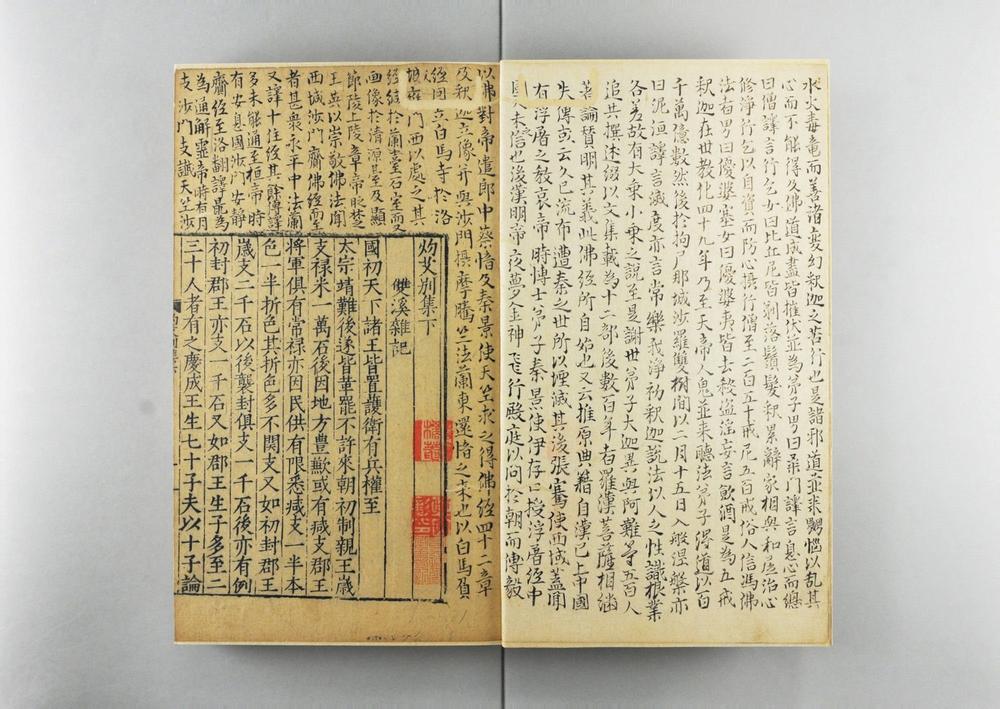 水火毒竜而善諸変幻釈迦之苦行也是諸邪道並来嬲惱以乱其
心而不能得久佛道成盡皆摧伏並為弟子男曰桑門譯言息心而總
曰僧譯言行乞女曰比丘尼皆剃落鬚髮釈累辭家相與和居治心
修浄行乞以自資而防心攝行僧至二百五十戒尼五百戒俗人信馮佛
法者男曰優婆塞女曰優婆夷皆去殺盗淫妄言飲酒是為五戒
釈迦在世教化四十九年乃至天帝人鬼並来聴法弟子得道以百
千萬億數然後於拘尸那城沙羅雙樹間以二月十五日入般涅槃亦
曰泥洹譯言滅度亦言常樂我浄初釈迦説法以人之性識根業
各差故有大乗小乗之説至是謝世弟子大迦異與阿難等五百人
追共撰述綴以文集載為十二部後數百年有羅漢菩薩相継
著論賛明其義此佛経所自始也又云推原典籍自漢已上中國
失傳或云久已流布遭秦之世所以堙滅其後張騫使西域蓋聞
有浮屠之教哀帝時博士弟子秦景使伊存口授浮屠経中
國人未信也後漢明帝夜夢金神飞行殿庭以问於朝而傳毅
以佛對帝遣郎中蔡愔及秦景使天竺求之得佛経四十二章
及釈迦立像并與沙門摂摩騰竺法蘭東還愔之来也以白馬負
経因立白馬寺於洛
城雍門西以處之其
経緘於蘭臺石室而又
画像於清源臺及顕
節陵上陵章帝時楚
王英以崇敬佛法聞
西域沙門齎佛経而至
者甚衆永平中法蘭
又譯十住経其餘傳譯
多未能通至桓帝時
有安息國沙門安静
齎経至洛翻譯最為
為通解靈帝時有月
支沙門支讖天竺沙
灼艾別集下
雙溪雜記
國初天下諸王皆置護衛有兵權至
太宗靖難後遂皆革罷不許來朝初制親王歲
支禄米一萬石後因地方豊歉或有减支郡王
將軍俱有常禄亦因民供有限悉减支一半本
色一半折色其折色多不関支又如初封郡王
歲支二千石以後襲封俱支一千石後亦有例
初封郡王亦支一千石又如郡王生子多至二
三十人者有之慶成王生七十子夫以十子論